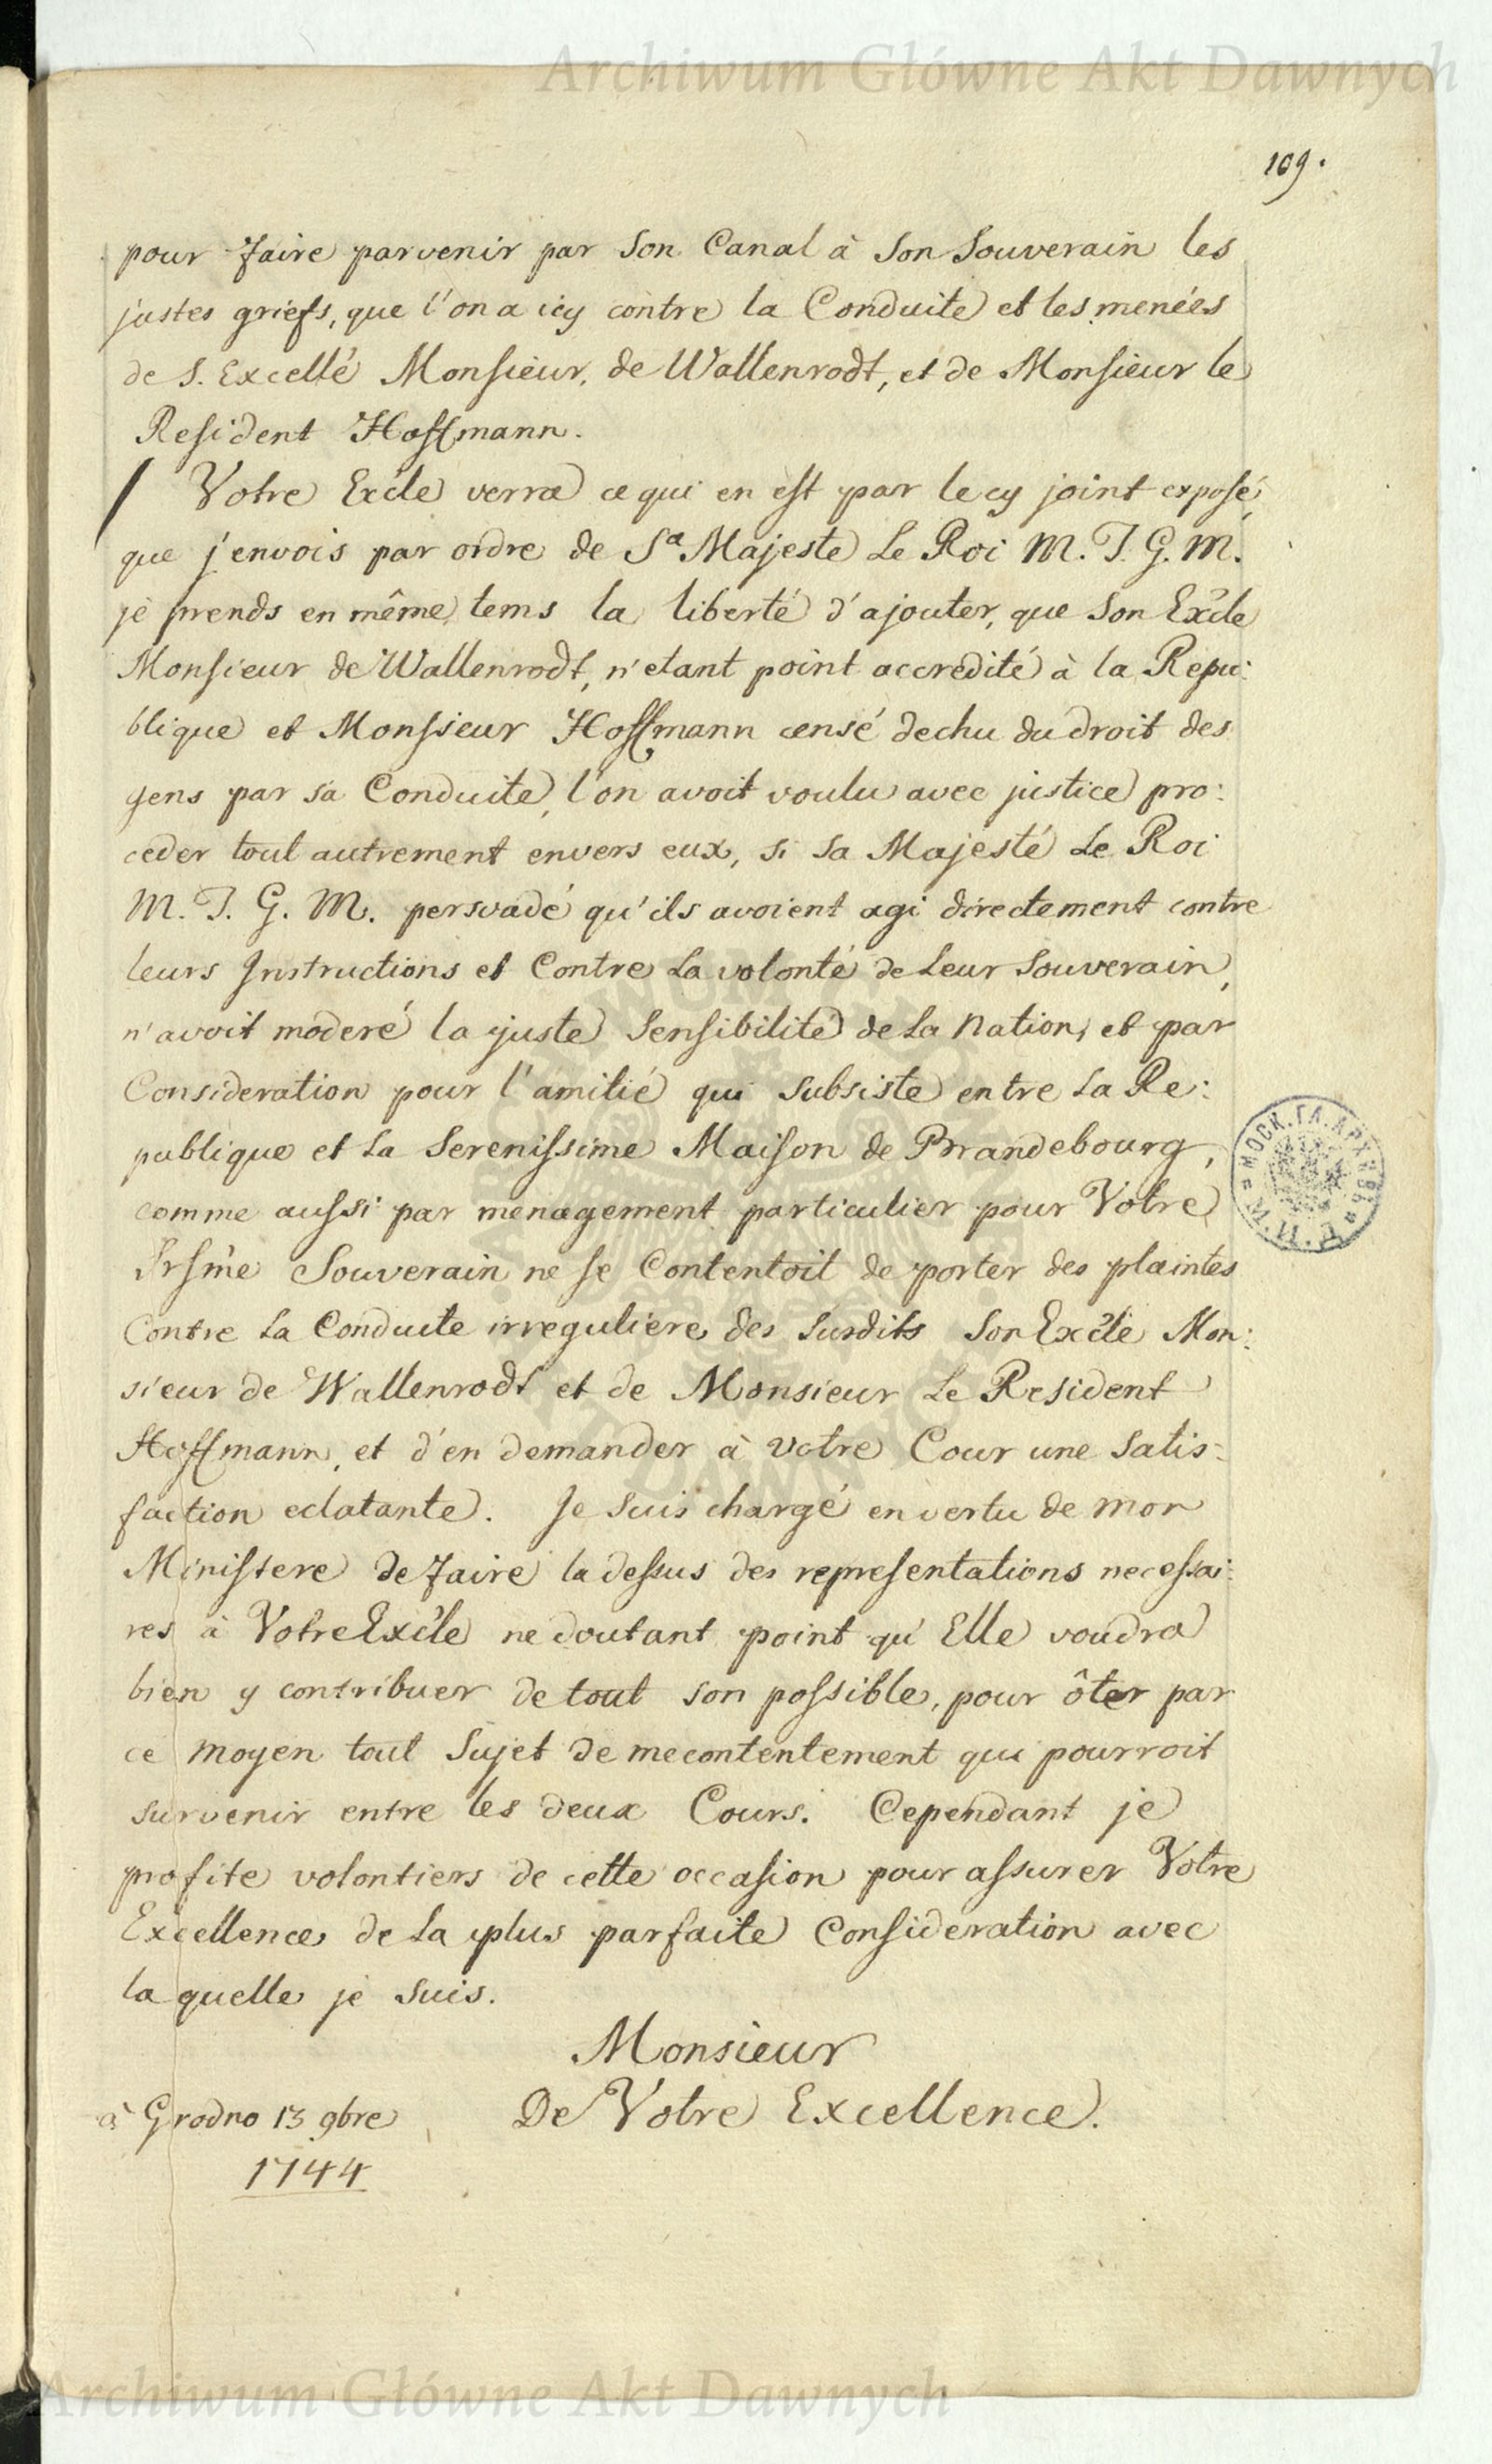 Archiwum Główne Akt Dawnych
109.
pour faire parvenir par Son Canal à Son Souverain les
justes griefs, que l'on a icy contre la Conduite et les menées
de S. Excellé Monsieur, de Wallenrodt, et de Monsieur le
Resident Hoffmann.
Votre Excle verra ce qui en est par le cy joint exposé,
que j'envois par ordre de Sa Majeste Le Roi M. T. G. M.
je prends en même tems la liberté d'ajouter, que Son Excle
Monsieur de Wallenrodt, n'etant point accredité à la Repu:
blique et Monsieur Hoffmann censé dechu du droit des
gens par sa Conduite, l'on avoit voulu avec justice pro:
ceder tout autrement envers eux, si Sa Majesté Le Roi
M. T. G. M. persvadé qu'ils avoient agi directement contre
leurs Instructions et Contre La volonté de Leur Souverain,
n'avoit moderé la juste Sensibilité de La Nation, et par
Consideration pour l'amitié qui Subsiste entre La Re:
publique et La Serenissime Maison de Brandebourg,
comme aussi par menagement particulier pour Votre
Srsme Souverain ne se Contentoit de porter des plaintes
Contre La Conduite irreguliere des Susdits Son Excle Mon:
sieur de Wallenrodt et de Monsieur Le Resident
Hoffmann, et d'en demander à Votre Cour une Satis:
faction eclatante. Je Suis chargé en vertu de mon
Ministere de faire la dessus des representations necessai:
res à Votre Excle ne doutant point qu'Elle voudra
bien y contribuer de tout son possible, pour ôter par
ce moyen tout Sujet de mecontentement qui pourroit
survenir entre les deux Cours. Cependant je
profite volontiers de cette occasion pour assurer Votre
Excellence de La plus parfaite Consideration avec
la quelle je Suis.
Monsieur
De Votre Excellence.
à Grodno 13 9bre
1744
МОСК. ГЛ. АРХИВЪ
Archiwum Główne Akt Dawnych